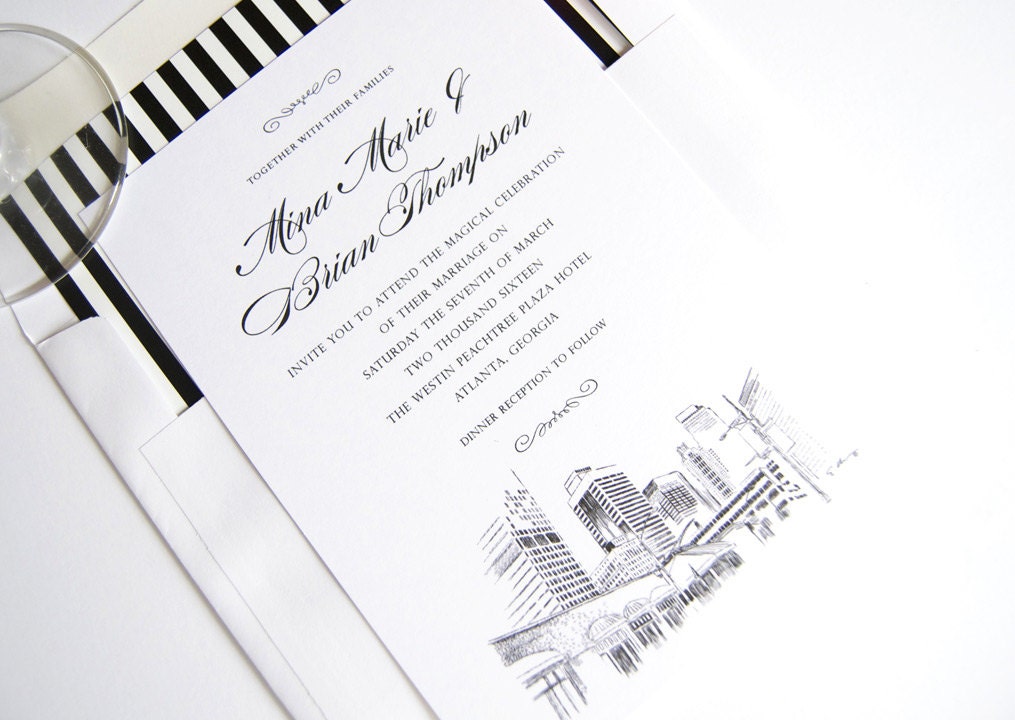 TOGETHER WITH THEIR FAMILIES
Mina Marie &
Brian Thompson
INVITE YOU TO ATTEND THE MAGICAL CELEBRATION
OF THEIR MARRIAGE ON
SATURDAY THE SEVENTH OF MARCH
TWO THOUSAND SIXTEEN
THE WESTIN PEACHTREE PLAZA HOTEL
ATLANTA, GEORGIA
DINNER RECEPTION TO FOLLOW